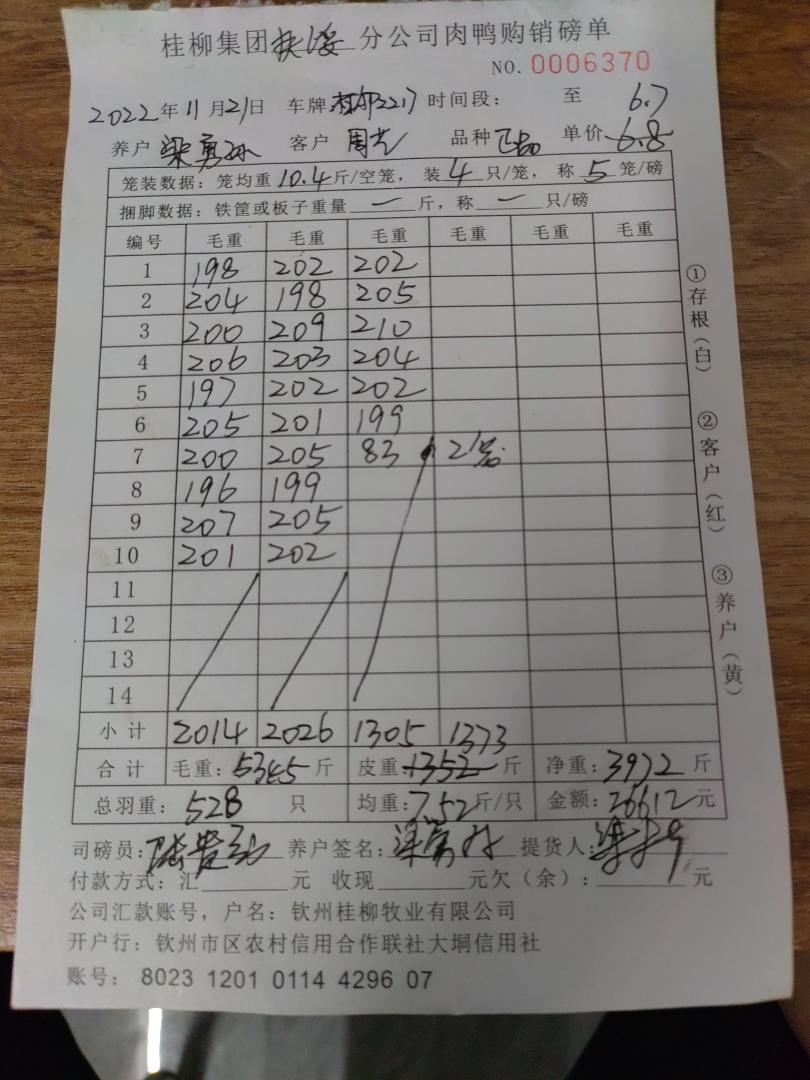 桂柳集团扶绥分公司肉鸭购销磅单
NO. 0006370
2022年11月21日 车牌 时间段： 至 6.7
养户 梁勇孙 客户 周 品种 正品 单价 6.8
笼装数据：笼均重 10.4 斤/空笼，装 4 只/笼，称 5 笼/磅
捆脚数据：铁筐或板子重量 一 斤，称 一 只/磅
编号 毛重 毛重 毛重 毛重 毛重 毛重
1 198 202 202
2 204 198 205
3 200 209 210
4 206 203 204
5 197 202 202
6 205 201 199
7 200 205 83 2笼
8 196 199
9 207 205
10 201 202
11
12
13
14
小计 2014 2026 1305 1373
合计 毛重：5345斤 皮重：1352斤 净重：3972斤
总羽重：528 只 均重：7.52斤/只 金额：26612元
司磅员： 养户签名： 提货人：
付款方式：汇 元 收现 元欠（余）： 元
公司汇款账号，户名：钦州桂柳牧业有限公司
开户行：钦州市区农村信用合作联社大垌信用社
账号： 8023 1201 0114 4296 07
①存根（白）
②客户（红）
③养户（黄）